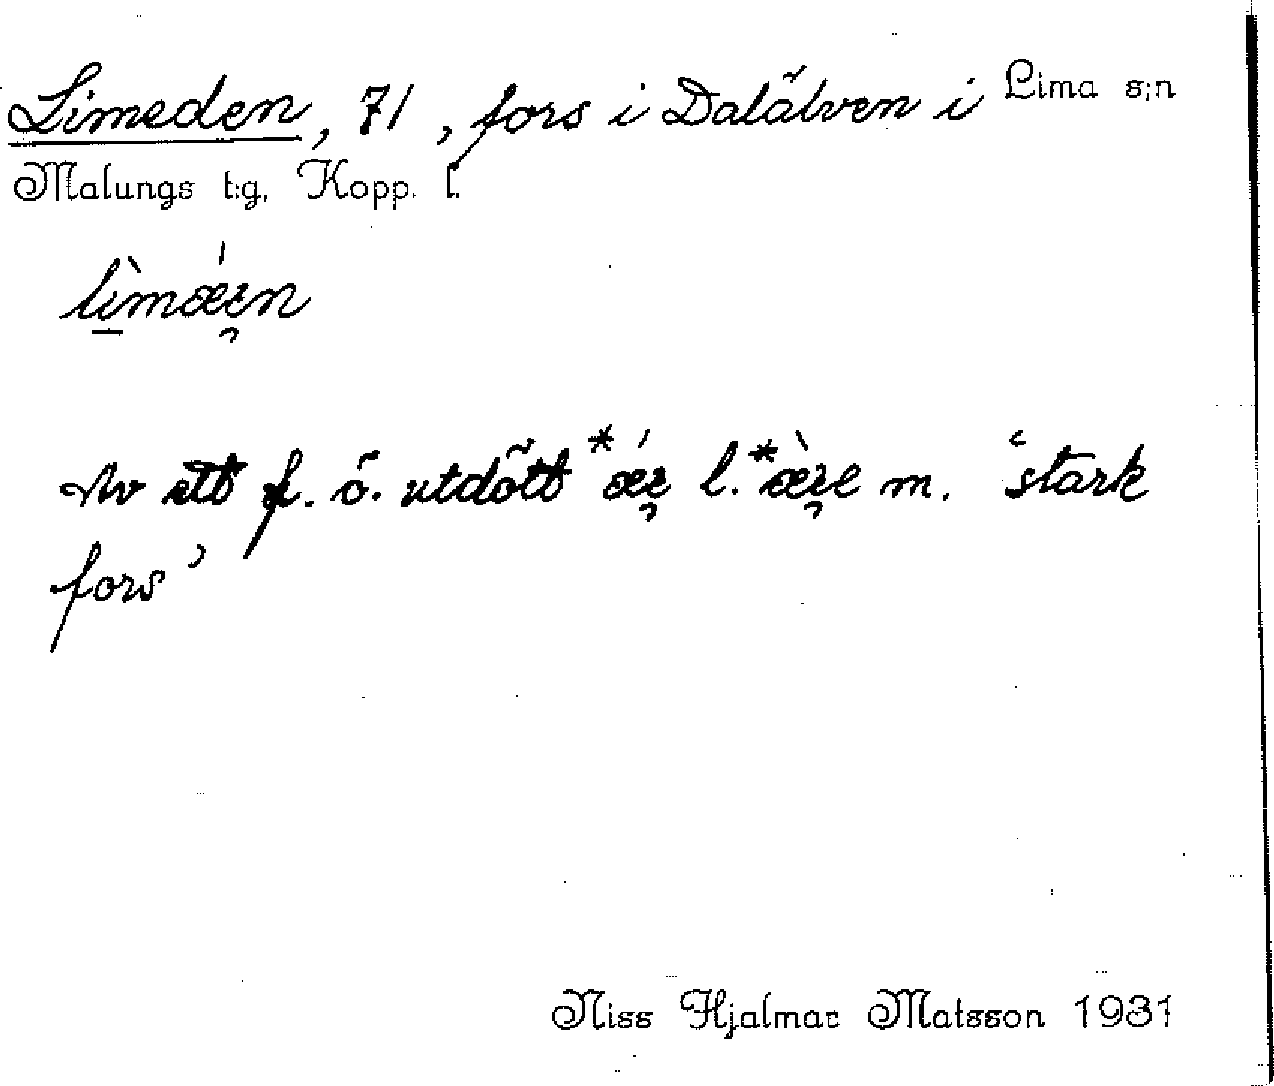 Limeden, 71, fors i Dalälven i Lima s:n
Malungs t:g, Kopp. l.
lìmǽęn
Av ett f. ö. utdött *ǽę l. *æ̀ęe m. ‘stark
fors’
Niss Hjalmar Matsson 1931